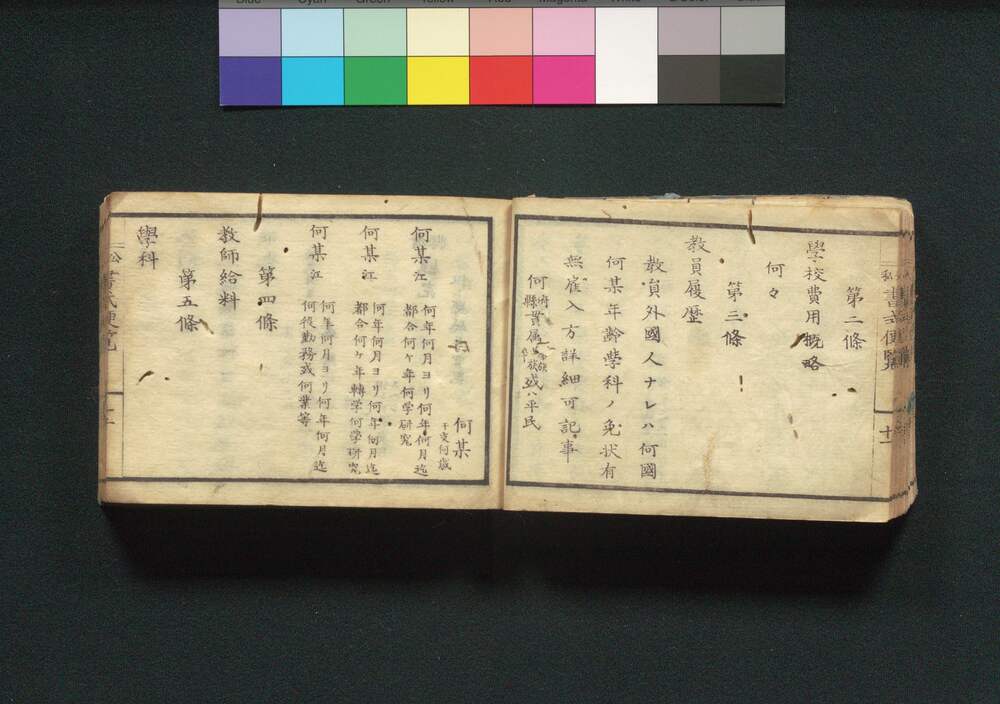 第二條
學校費用概略
何々
第三條
教員履歴
教員外國人ナレハ何國
何某年齡學科ノ免状有
無雇入方詳細可記事
何府縣貫属士族或ハ平民
何某
干支何歳
何某江 何年何月ヨリ何年何月迄
都合何ケ年何学研究
何某江 何年何月ヨリ何年何月迄
都合何ケ年轉学何学研究
何某江 何年何月ヨリ何年何月迄
何役勤務或何業等
第四條
教師給料
第五條
學科